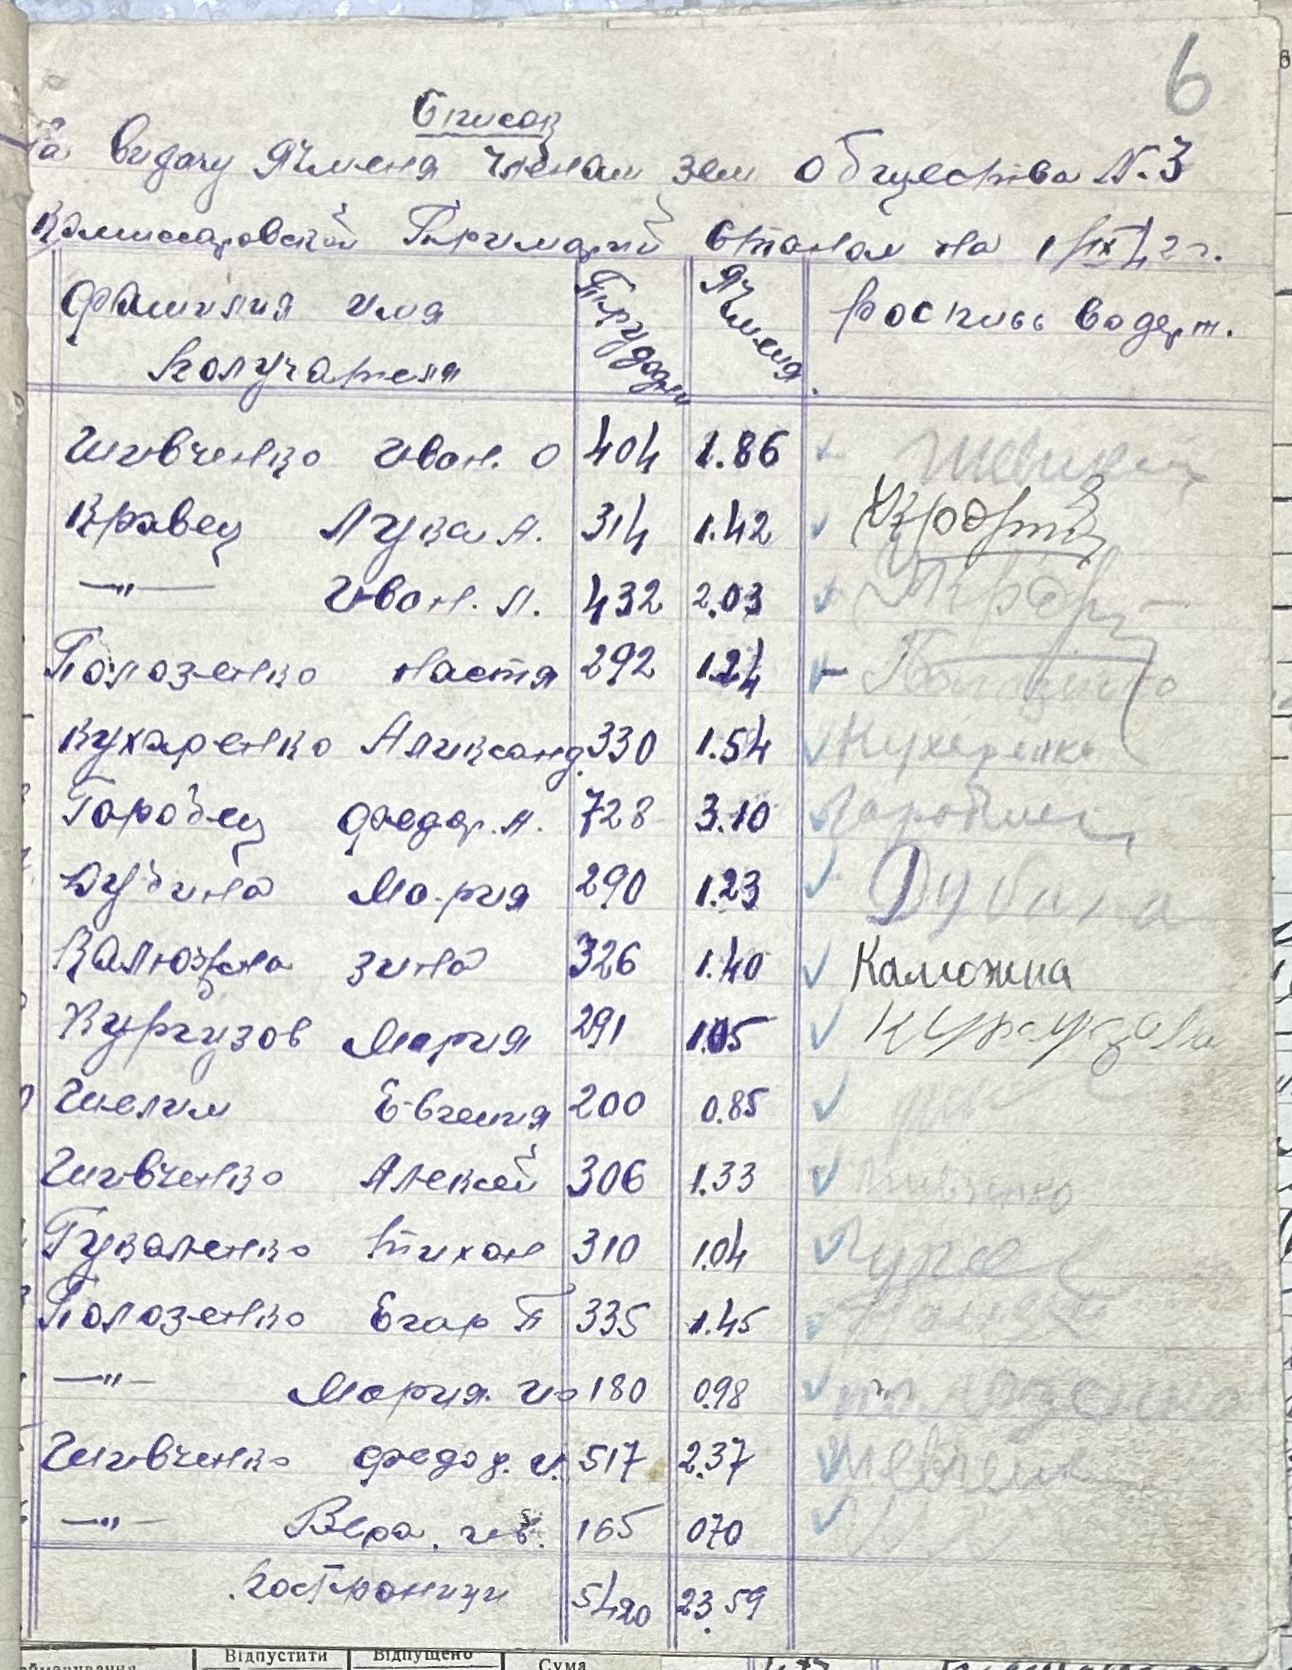 6
Список
На видачу Ячменя членам зем общества №3
Комиссаровской Громадий станом на 1/IX 42 г.
Фамилия имя получателя Трудодни Ячменя Роспись водерж.
Шивченко Иван. О 404 1.86
Кравец Лука А. 314 1.42
—"— Иван. Л. 432 2.03
Полозенко Настя 292 1.24
Кухаренко Аликсанд. 330 1.54 Кухаренко
Горобец Федор. А. 728 3.10
Дубина Мария 290 1.23 Дубина
Калюжна Зина 326 1.40 Калюжна
Кургузов Мария 291 1.05 Кургузова
Шелим Евгения 200 0.85
Шивченко Алексей 306 1.33
Гукаленко Тихон 310 1.04
Полозенко Егор П 335 1.45
—"— Мария. Ив 180 0.98
Шивченко Федор. И. 517 2.37
—"— Вера. 165 070
Построници 5420 23.59
Відпустити Відпущено Сума